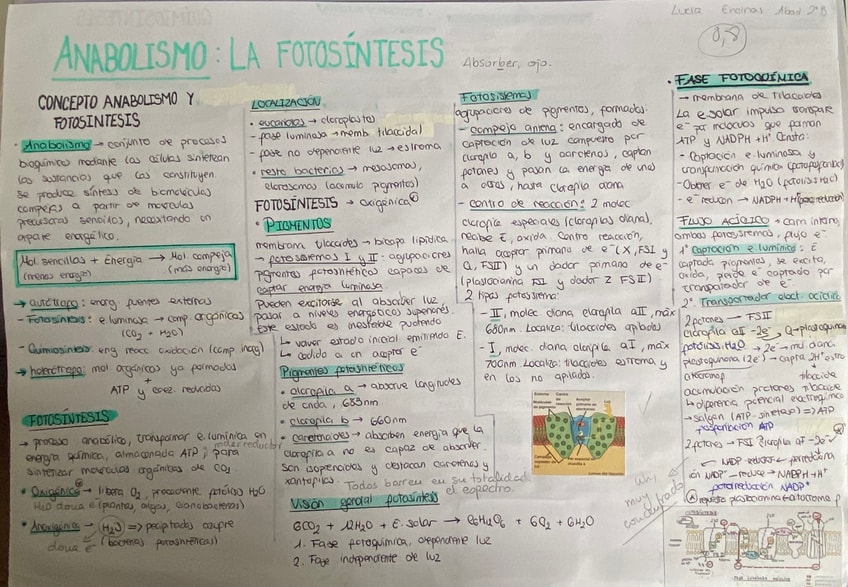 Lucía Encinas Abad 2ºB
0,8
ANABOLISMO: LA FOTOSÍNTESIS
Absorber, ojo.
CONCEPTO ANABOLISMO Y
FOTOSÍNTESIS
• Anabolismo → conjunto de procesos
bioquímicos mediante las células sintetizan
las sustancias que las constituyen
se produce síntesis de biomoléculas
complejas a partir de moléculas
precursoras sencillas, necesitando un
aporte energético.
Mol. sencillas + Energía → Mol. compleja
(menos energía) (más energía)
→ autótrofo: energ. fuentes externas
- Fotosíntesis: e. luminosa → comp. orgánicas
(CO2 + H2O)
- Quimiosíntesis: eng reacc oxidación (comp. inorg)
→ heterótrofo: mol orgánicas ya formadas
+
ATP y coez. reducidas
FOTOSÍNTESIS
→ proceso anabólico, transformar e. lumínica en
energía química, almacenada ATP y poder reductor para
sintetizar moléculas orgánicas de CO2.
• Oxigénica → libera O2, procedente fotólisis H2O
H2O dona e- (plantas, algas, cianobacterias)
• Anoxigénica → (H2S) → precipitados azufre
dona e- (bacterias fotosintéticas)
LOCALIZACIÓN
• eucariotas → cloroplastos
- fase luminosa → memb. tilacoidal
- fase no dependiente luz → estroma
• resto bacterias → mesosomas,
clorosomas (acúmulo pigmentos)
FOTOSÍNTESIS → Oxigénica
• PIGMENTOS
membrana tilacoides → bicapa lipídica
→ fotosistemas I y II: agrupaciones
pigmentos fotosintéticos capaces de
captar energía luminosa.
Pueden excitarse al absorber luz
pasar a niveles energéticos superiores.
Este estado es inestable pudiendo
↳ volver estado inicial emitiendo E.
↳ cedido a un aceptor e-
Pigmentos fotosintéticos
• clorofila a → absorve longitudes
de onda, 683nm
• clorofila b → 660nm
• carotenoides → absorben energía que la
clorofila a no es capaz de absorver
son isoprenoides y destacan carotenos y
xantofilas. Todos barren en su totalidad
el espectro.
Visión general fotosíntesis
6CO2 + 12H2O + E. solar → C6H12O6 + 6O2 + 6H2O
1. Fase fotoquímica, dependiente luz
2. Fase independiente de luz
Fotosistemas
agrupaciones de pigmentos, formados:
- complejo antena: encargado de
captación de luz compuesto por
clorofila a, b y carotenos, captan
fotones y pasan la energía de unos
a otros, hasta clorofila diana.
- Centro de reacción: 2 molec
clorofila especiales (clorofilas diana),
recibe E, oxida. Centro reacción,
halla aceptor primario de e- (X, FSI y
Q, FSII) y un dador primario de e-
(plastocianina FSI y dador Z FSII)
2 tipos fotosistema:
- II, molec diana clorofila aII, máx
680nm. Localiza: tilacoides apilados
- I, molec. diana clorofila aI, máx
700nm. Localiza: tilacoides estroma y
en los no apilados.
Uhi,
muy
condensado
• FASE FOTOQUÍMICA
→ membrana de tilacoides
La e. solar impulsa transporte
e- por moléculas que forman
ATP y NADPH + H+ Consta:
- Captación e. luminosa y
transformación química
- Obtener e- de H2O (fotólisis H2O)
- e- reducen → NADPH + H+
FLUJO ACÍCLICO → cam interv.
ambos fotosistemas, flujo e-
1º Captación e. lumínica: E
captada pigmentos, se excita,
oxida, pierde e- captado por
transportador de e-
2º. Transportador elect. acíclico
2 fotones → FSII
clorofila aII -2e- Q → plastoquinona
fotólisis H2O → 2e- → mol diana.
plastoquinona (2e-) → capta 2H+ estroma
tilacoide
acumulación protones tilacoide
↳ diferencia potencial electroquímico
→ salgan (ATP-sintetasa) ⇒ ATP
fosforilación ATP
2 fotones → FSI clorofila aI -2e-
ion NADP+ → reduce → NADPH + H+
fotorreducción NADP+